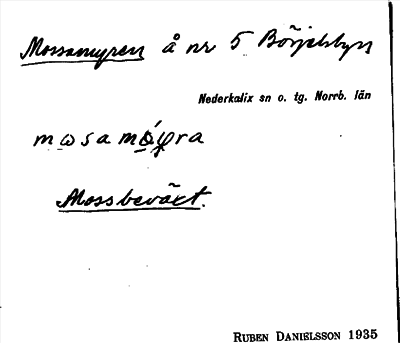 Mossamyren å nr 5 Börjelsbyn
Nederkalix sn o. tg. Norrb. län
Mossbeväxt.
RUBEN DANIELSSON 1935